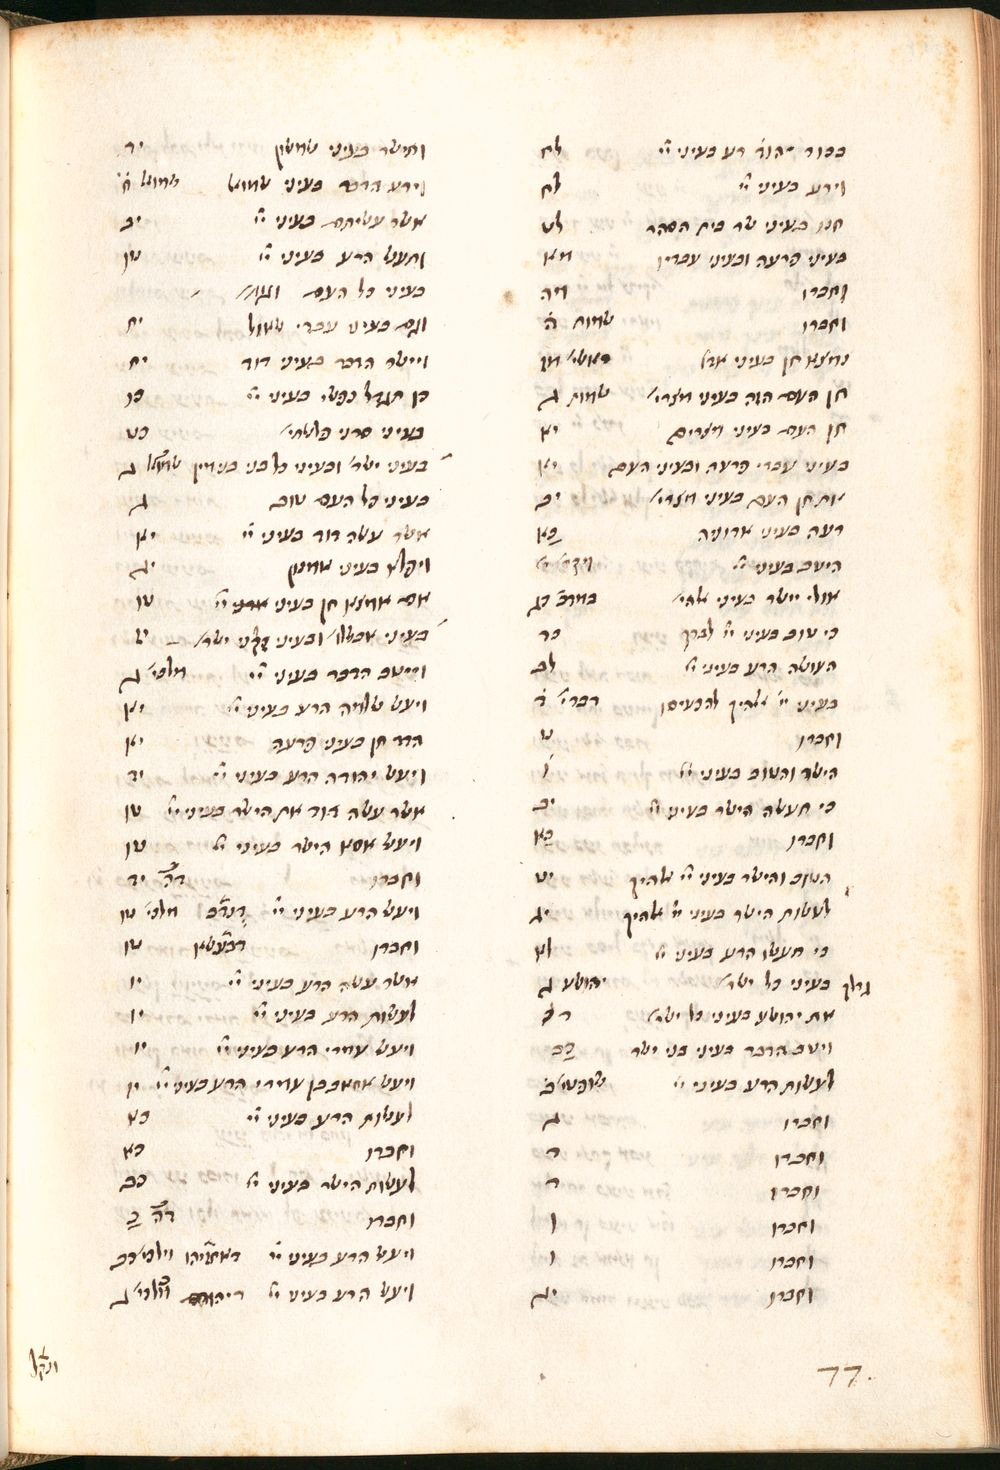 בכור יהוד׳ רע בעיני יי׳ לח
וירע בעיני יי׳ לח
חנו בעיני שר בית הסהר לט
בעיני פרעה ובעיני עבדיו מא
וחברו
וחברו שמות ה
נמצא חן בעיני אד׳ בראשי׳ מז
חן העם הזה בעיני מצרי׳ שמות ג
חן העם בעיני מצרים יא
בעיני עבדי פרעה ובעיני העם יא
את חן העם בעיני מצרי׳ יב
רעה בעיני אדוניה כא
הישב בעיני יי׳
אולי יישר בעיני אלהי׳ במדב׳ כג
כי טוב בעיני יי׳ לברך כד
העושה הרע בעיני יי׳ לב
בעיני יי׳ אלהיך להכעיסו דברי׳ ד
וחברו ט
הישר והטוב בעיני יי׳ ו
כי תעשה הישר בעיני יי׳ יב
וחברו כא
הטוב והישר בעיני יי׳ אלהיך יב
לעשות הישר בעיני יי׳ אלהיך יג
כי תעשו הרע בעיני יי׳ לא
גדלך בעיני כל ישר׳ יהושע ג
את יהושע בעיני כל ישר׳ ד
ויטב הדבר בעיני בני ישר׳ כב
לעשות הרע בעיני יי׳ שופטי׳ ב
וחברו ג
וחברו ד
וחברו ד
וחברו ו
וחברו ו
וחברו יג
ותישר בעיני שמשון יד
וירע הדבר בעיני שמואל שמואל ח
אשר עשיתם בעיני יי׳ יב
ותעש הרע בעיני יי׳ טו
בעיני כל העם וגם
וגם בעיני עבדי שאול יח
ויישר הדבר בעיני דוד יח
כן תגדל נפשי בעיני יי׳ כו
בעיני סרני פלשתי׳ כט
בעיני ישר׳ ובעיני כל בני בנימין שמואל ג
בעיני כל העם טוב ג
אשר עשה דוד בעיני יי׳ יא
ויפלא בעיני אמנון יג
אם אמצא חן בעיני אדני יי׳ טו
בעיני אבשלו׳ ובעיני זקני ישר׳
וייטב הדבר בעיני יי׳ מלכי׳ ג
ויעש שלמה הרע בעיני יי׳ יא
הדד חן בעיני פרעה יא
ויעש יהודה הרע בעיני יי׳ יד
אשר עשה דוד את הישר בעיני יי׳ טו
ויעש אסא הישר בעיני יי׳ טו
וחברו דה יד
ויעש הרע בעיני יי׳ דנדב מלכי׳ טו
וחברו דבעשא טו
אשר עשה הרע בעיני יי׳ יו
לעשות הרע בעיני יי׳ יו
ויעש עמרי הרע בעיני יי׳ יו
ויעש אחאב בן עמרי הרע בעיני יי׳ יו
לעשות הרע בעיני יי׳ כא
וחברו כא
לעשות הישר בעיני יי׳ כב
וחברו דה כ
ויעש הרע בעיני יי׳ דאחזיהו מלכי׳ כב
ויעש הרע בעיני יי׳ דיהורם מלכי׳ ג
77.